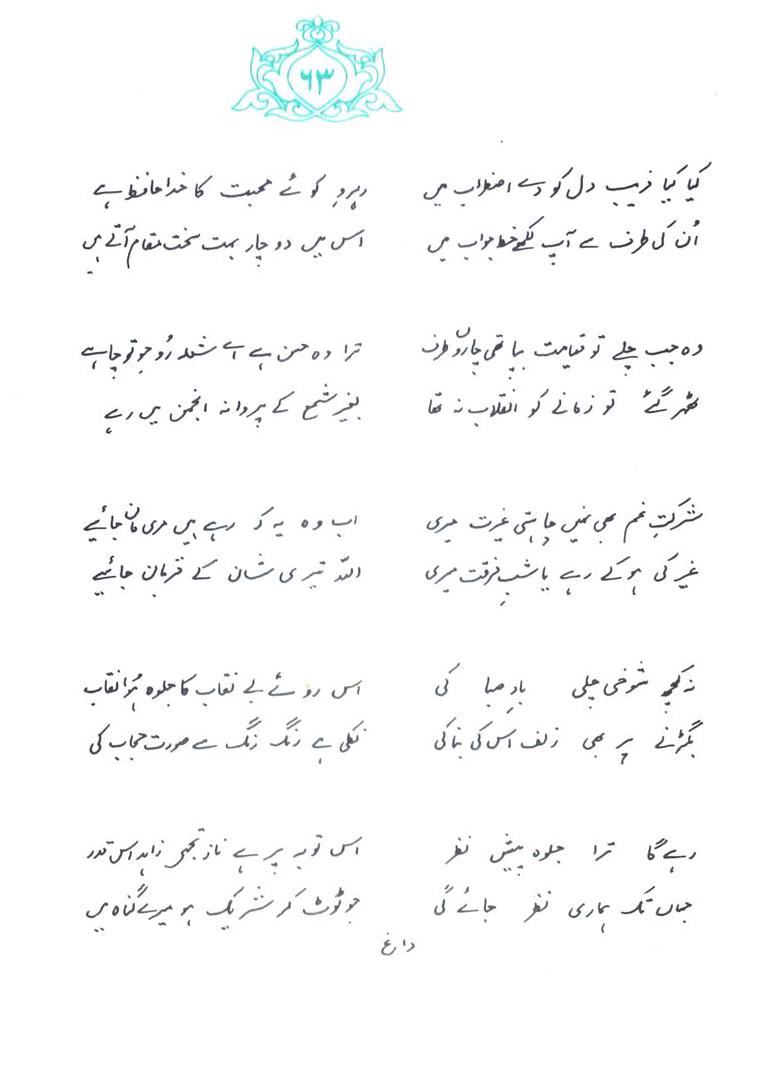 ۶۳
کیا کیا فریب دل کو دے اضطراب میں
اُن کی طرف سے آپ لکھے خط جواب میں
رہروِ کوئے محبت کا خدا حافظ ہے
اس میں دو چار بہت سخت مقام آتے ہیں
وہ جب چلے تو قیامت بپا تھی چاروں طرف
ٹھہر گئے تو زمانے کو انقلاب نہ تھا
ترا وہ حسن ہے اے شعلہ رُو جو تو چاہے
بغیر شمع کے پروانہ انجمن میں رہے
شرکتِ غم بھی نہیں چاہتی غیرت میری
غیر کی ہو کے رہے یا شبِ فرقت میری
اب وہ یہ کہہ رہے ہیں مری مان جائیے
اللہ تیری شان کے قربان جائیے
نہ کچھ شوخی چلی بادِ صبا کی
بگڑنے پر بھی زلف اس کی بنا کی
اس روئے بے نقاب کا جلوہ ہُوا نقاب
نکلی ہے رنگ رنگ سے صورت حجاب کی
رہے گا ترا جلوہ پیشِ نظر
جہاں تک ہماری نظر جائے گی
اس توبہ پر ہے ناز تجھے زاہد اس قدر
جو ٹوٹ کر شریک ہو میرے گناہ میں
داغ